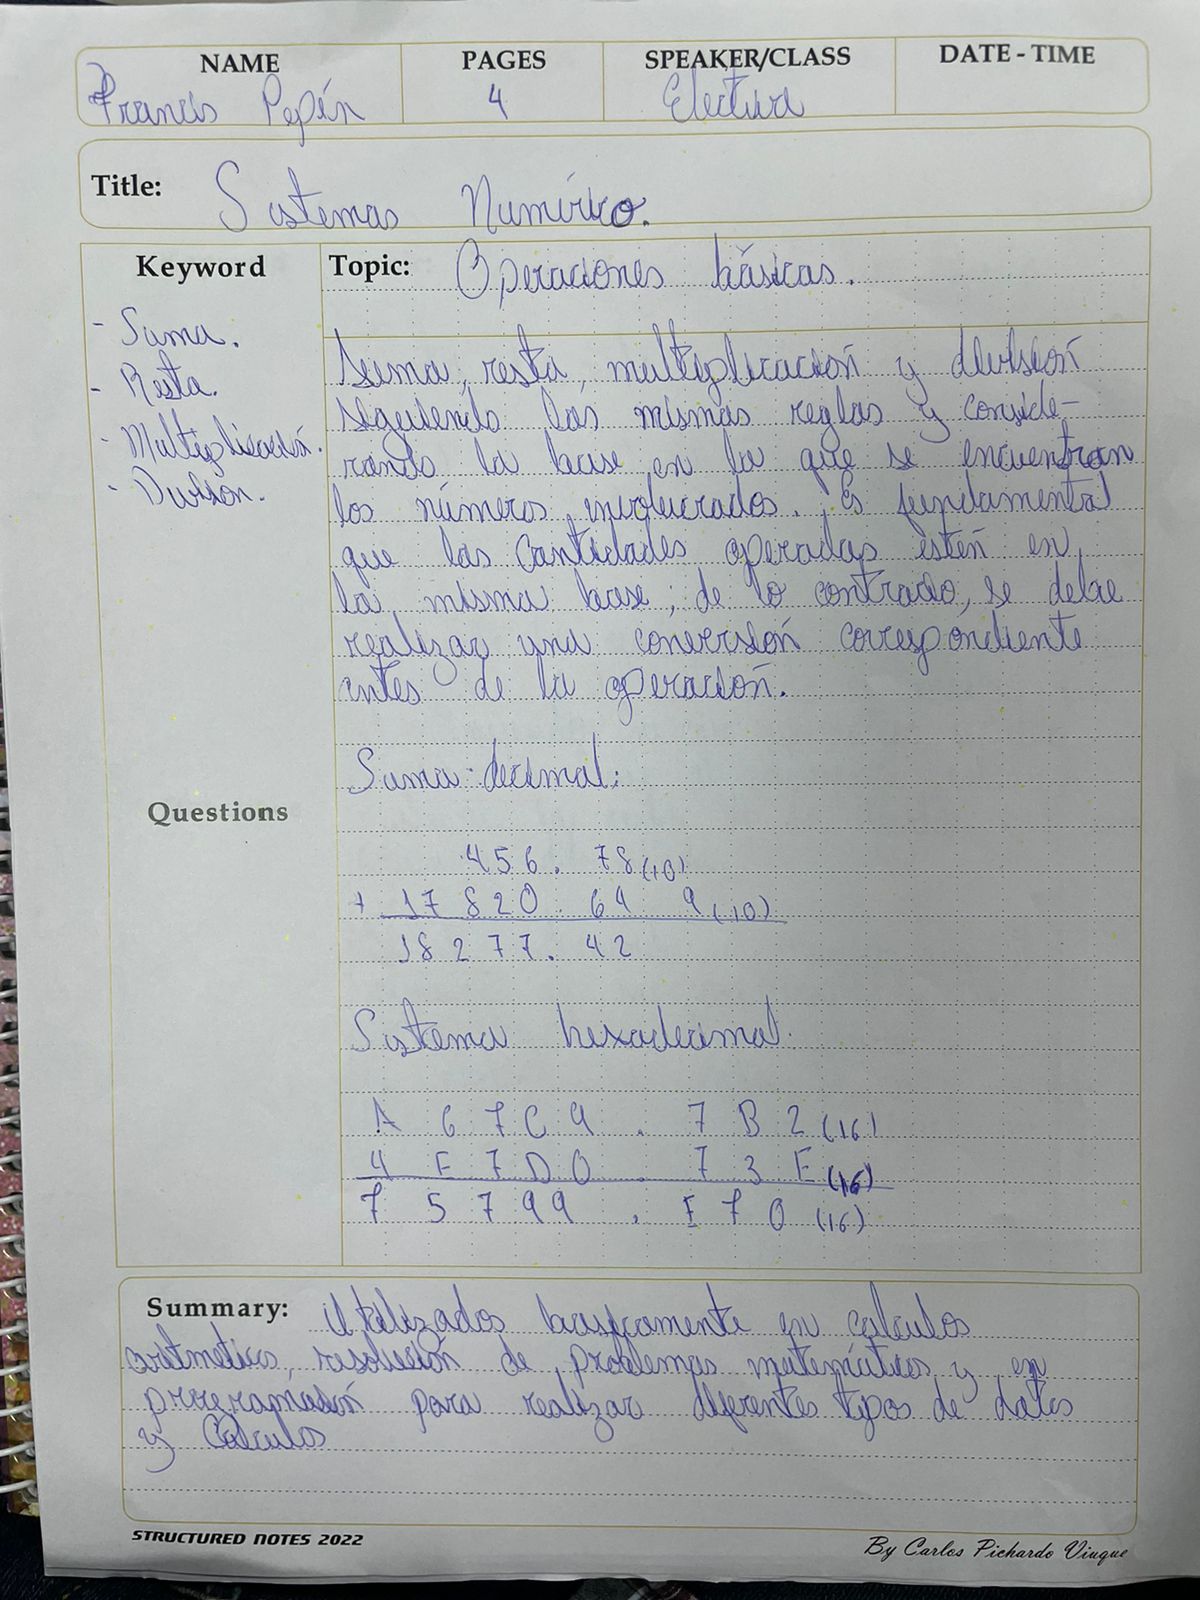 NAME PAGES SPEAKER/CLASS DATE - TIME
Francis Pepén 4 Electiva
Title: Sistemas Numérico.
Keyword Topic: Operaciones básicas.
- Suma.
- Resta.
- Multiplicación.
- Division.
Suma, resta, multiplicación y división
siguiendo las mismas reglas y conside-
rando la base en la que se encuentran
los números involucrados. Es fundamental
que las cantidades operadas estén en
la misma base, de lo contrario, se debe
realizar una conversión correspondiente
antes de la operación.
Suma decimal:
Questions
456. 78(10)
+ 17 820 64 9(10)
18277. 42
Sistema hexadecimal
A 6 7 C 9 . 7 B 2 (16)
4 F 7 D 0 . 7 3 E (16)
7 5 7 9 9 . F 7 0 (16)
Summary: Utilizados basicamente en calculos
aritmeticos, resolución de problemas matemáticos y en
programación para realizar diferentes tipos de datos
y Calculos
STRUCTURED NOTES 2022
By Carlos Pichardo Viuque